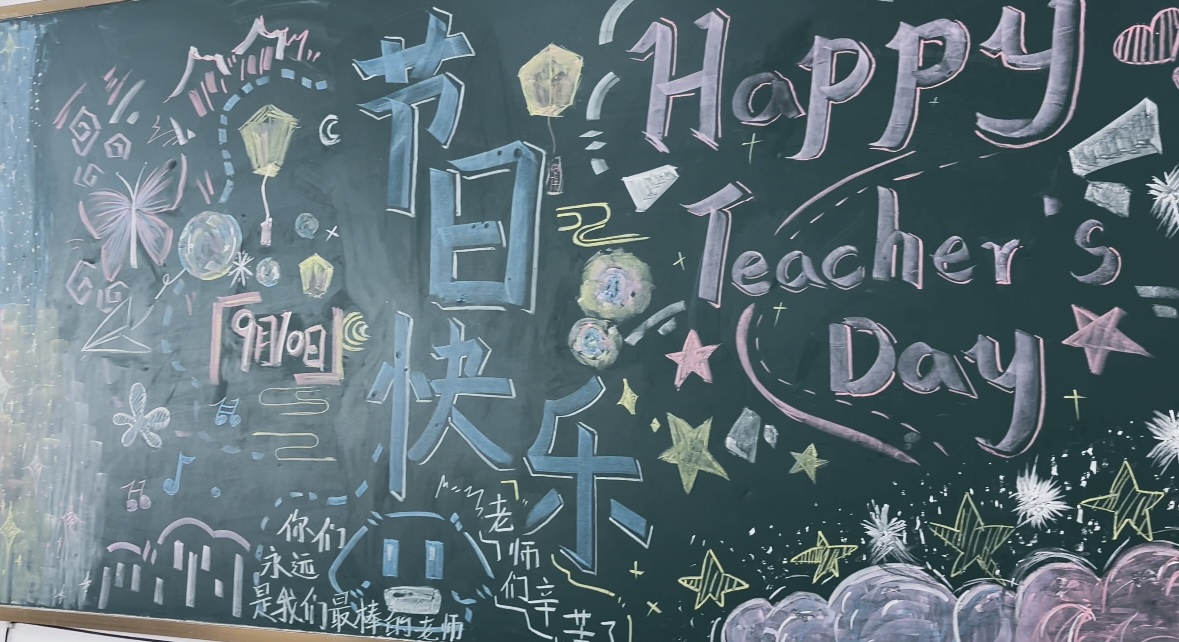 节日
快乐
Happy
Teacher's
Day
9月10日
你们
永远
是我们最棒的老师
老师
们辛
苦了